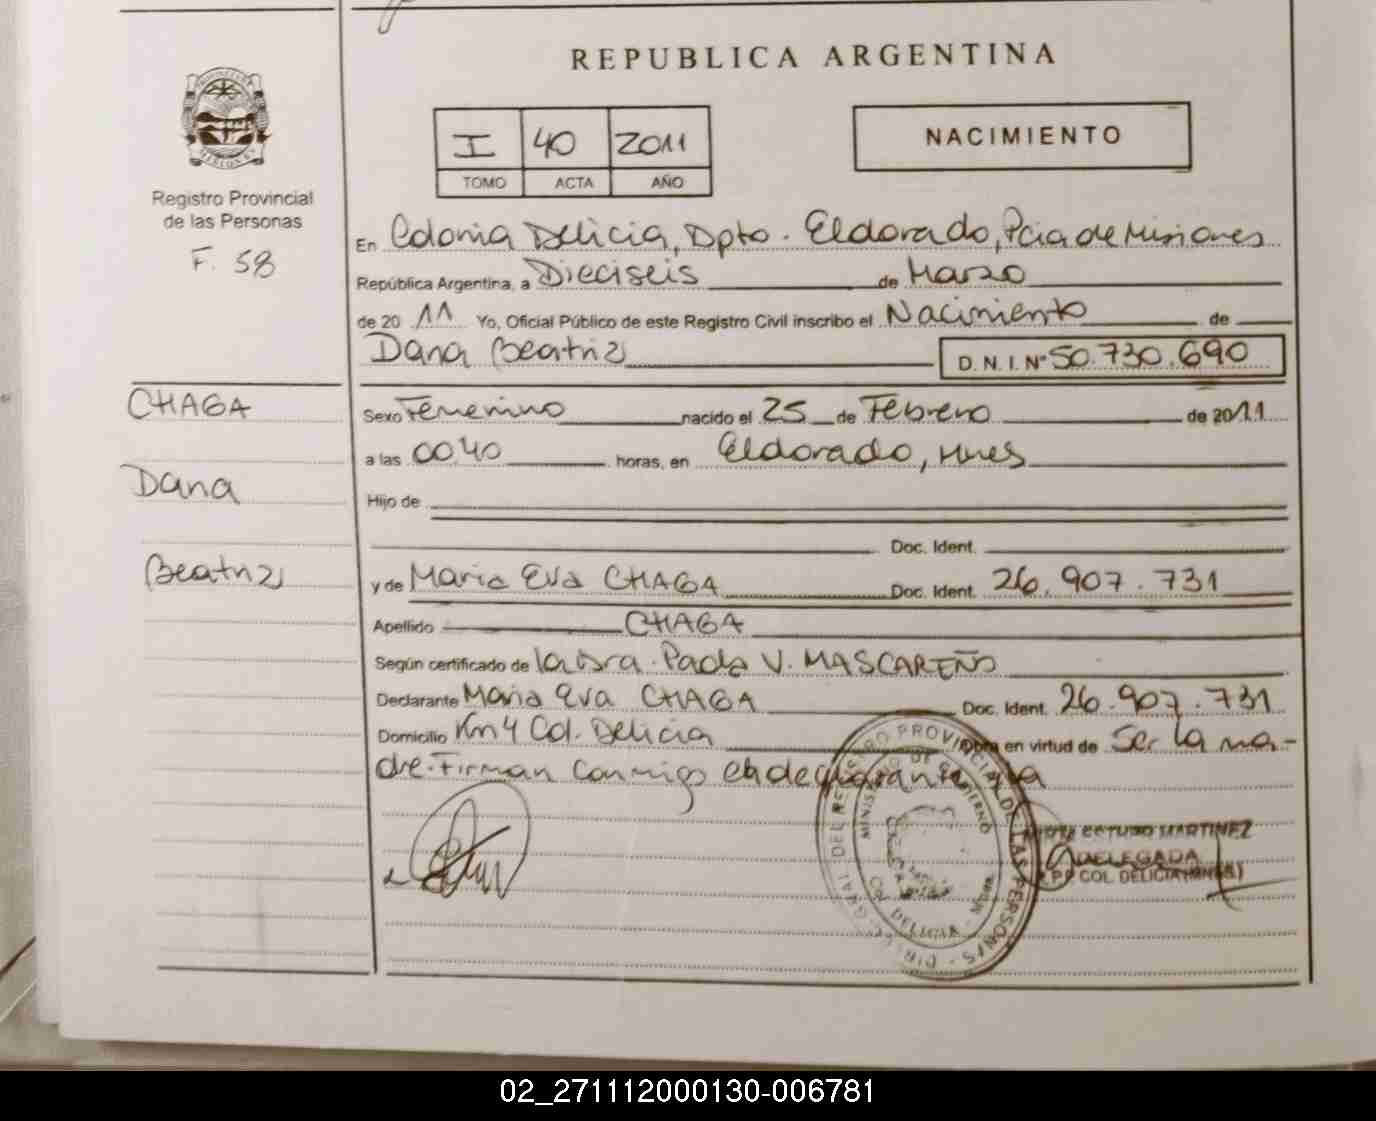 REPUBLICA ARGENTINA
PROVINCIA DE MISIONES
Registro Provincial
de las Personas
F. 58
I 40 2011
TOMO ACTA AÑO
NACIMIENTO
En Colonia Delicia, Dpto. Eldorado, Pcia de Misiones
República Argentina, a Dieciseis de Marzo
de 2011 Yo, Oficial Público de este Registro Civil inscribo el Nacimiento de
Dana Beatriz D.N.I. Nº 50.730.690
CHAGA
Dana
Beatriz
Sexo Femenino nacido el 25 de Febrero de 2011
a las 00.40 horas, en Eldorado, Mnes
Hijo de
Doc. Ident.
y de Maria Eva CHAGA Doc. Ident. 26.907.731
Apellido CHAGA
Según certificado de la Dra. Paola V. MASCAREÑO
Declarante Maria Eva CHAGA Doc. Ident. 26.907.731
Domicilio Km 4 Col. Delicia Obra en virtud de Ser la ma-
dre. Firman conmigo
DIR. GRAL DEL REGISTRO PROVINCIAL DE LAS PERSONAS
MINISTERIO DE GOBIERNO
COL. DELICIA - Mnes
MARTINEZ
DELEGADA
COL DELICIA (MNES)
02_271112000130-006781